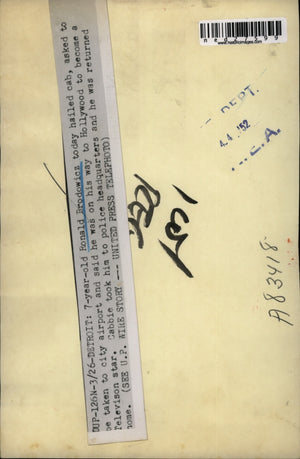 DUP-126N-3/26-DETROIT: 7-year-old Ronald Brodowicz today hailed cab, asked to
be taken to city airport and said he was on his way to Hollywood to become a
Televison star. Cabbie took him to police headquarters and he was returned
home. (SEE U.P. WIRE STORY --- UNITED PRESS TELEPHOTO)
DEPT.
4 4 '52
E.A.
A83418